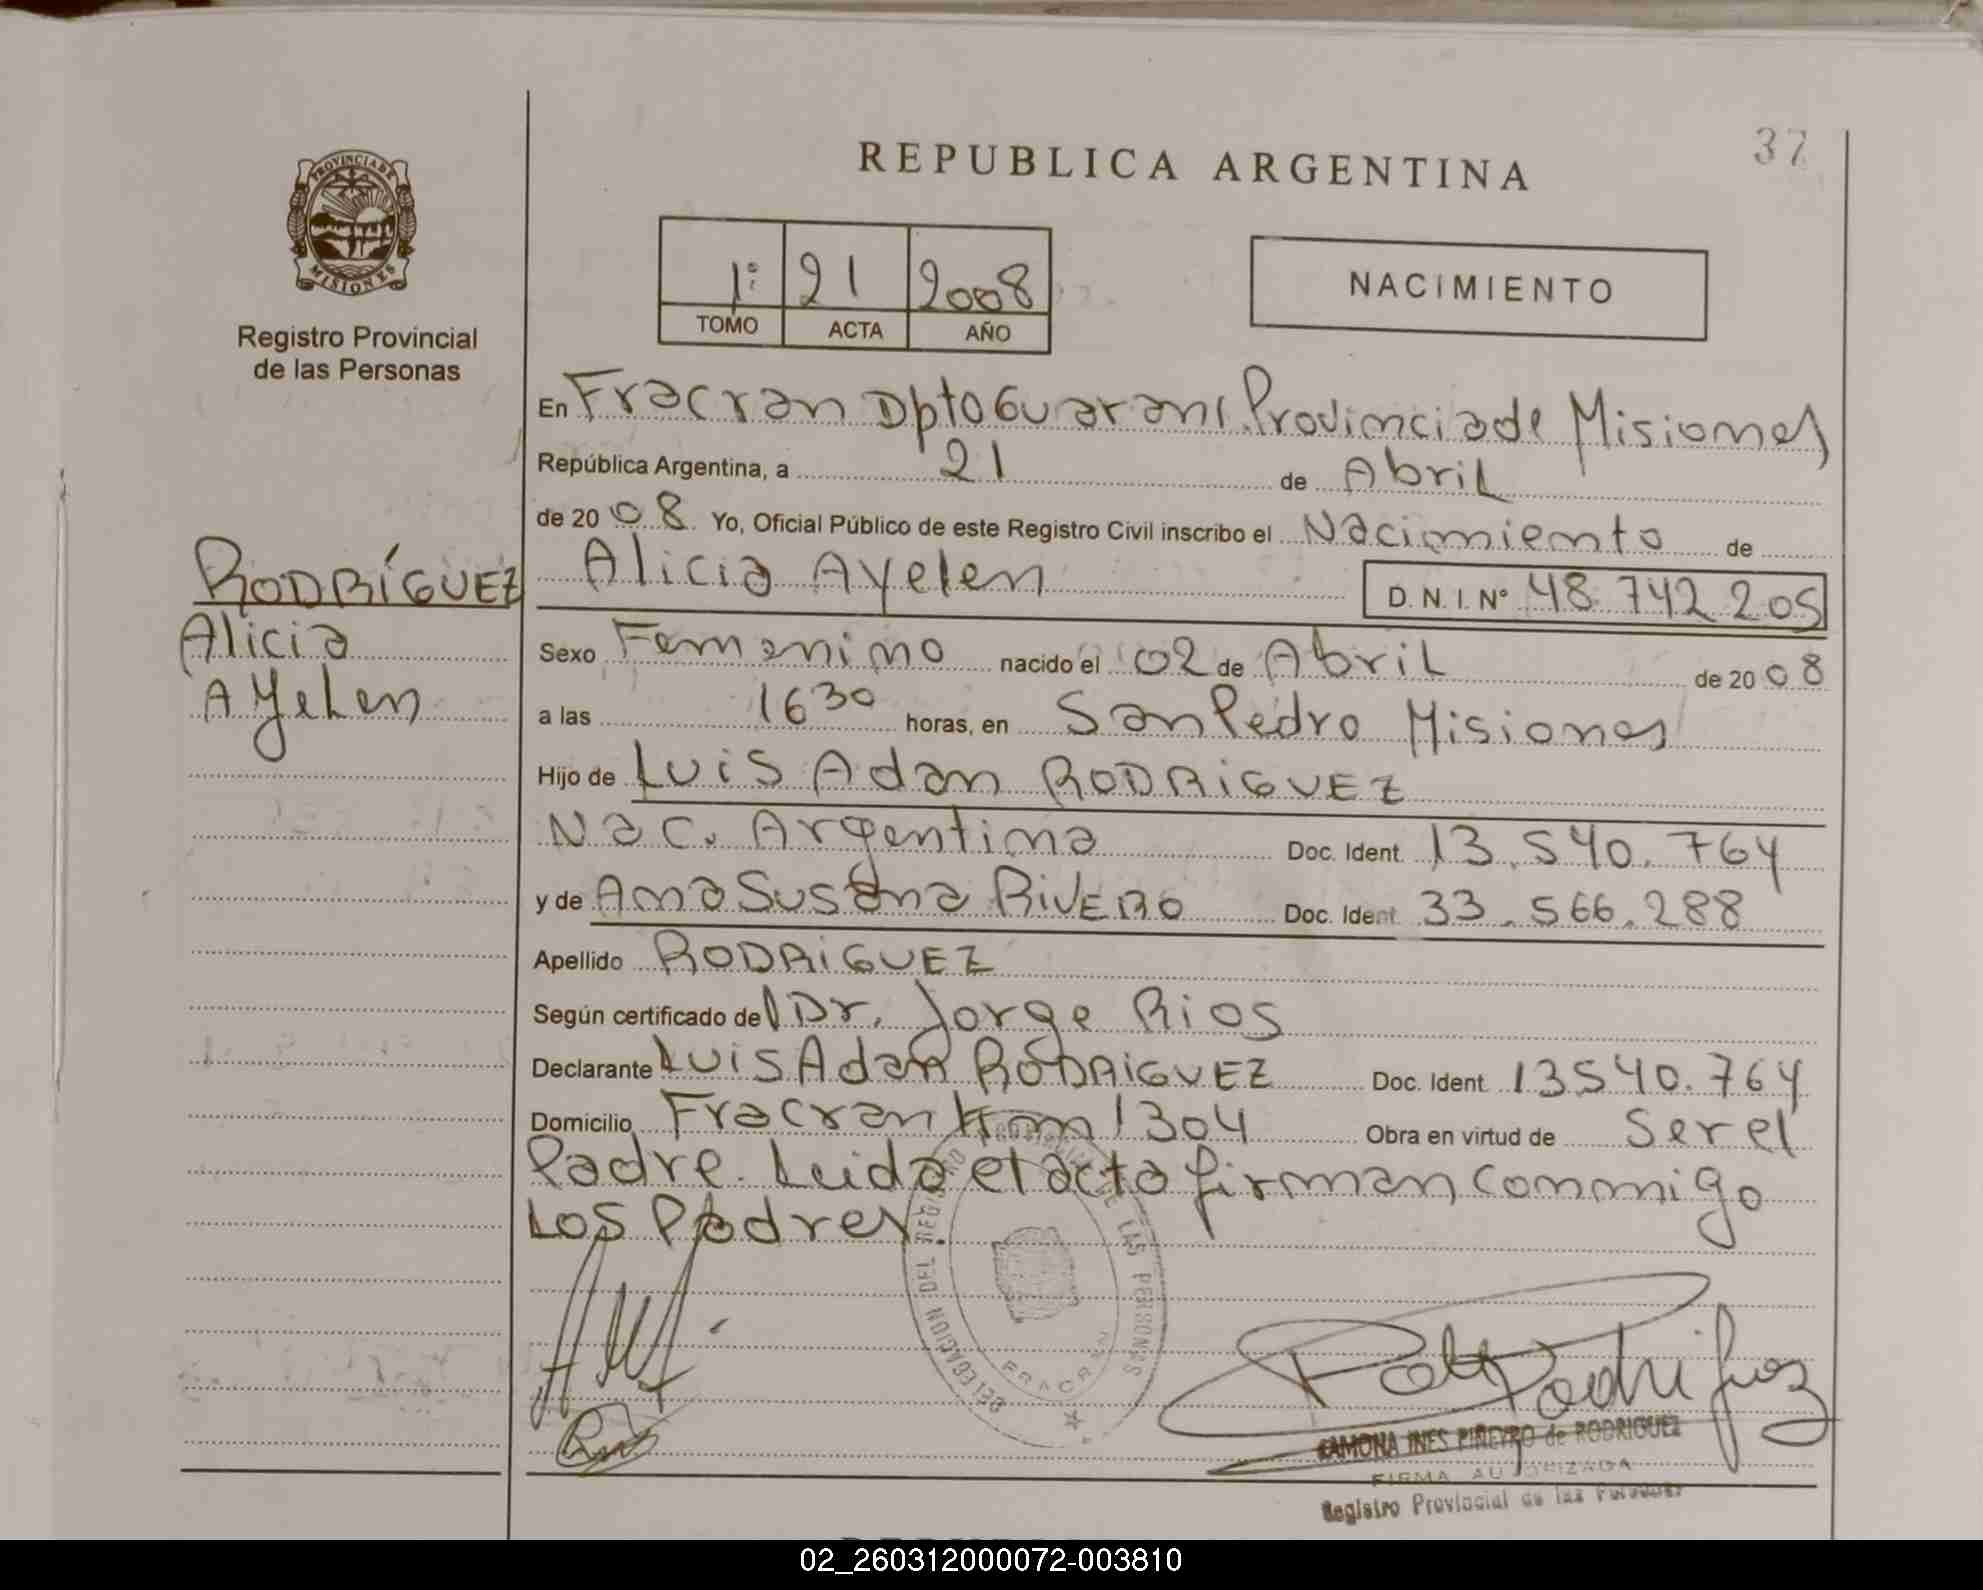 37
REPUBLICA ARGENTINA
PROVINCIA DE
MISIONES
Registro Provincial
de las Personas
1º 21 2008
TOMO ACTA AÑO
NACIMIENTO
En Fracran Dpto Guarani Provincia de Misiones
República Argentina, a 21 de Abril
de 2008 Yo, Oficial Público de este Registro Civil inscribo el Nacimiento de
Alicia Ayelen D.N.I. Nº 48.742.205
RODRÍGUEZ
Alicia
AYelen
Sexo Femenino nacido el 02 de Abril de 2008
a las 16 30 horas, en San Pedro Misiones
Hijo de Luis Adan RODRIGUEZ
Nac. Argentina Doc. Ident. 13.540.764
y de Ana Susana RIVERO Doc. Ident. 33.566.288
Apellido RODRIGUEZ
Según certificado del Dr. Jorge Rios
Declarante Luis Adan RODRIGUEZ Doc. Ident. 13540.764
Domicilio Fracran Km 1304 Obra en virtud de Ser el
Padre. Leida el acta firman conmigo
Los Padres.
DELEGACION DEL REGISTRO PROVINCIAL DE LAS PERSONAS
FRACRAN
RAMONA INES PIÑEYRO de RODRIGUEZ
FIRMA AUTORIZADA
Registro Provincial de las Personas
02_260312000072-003810